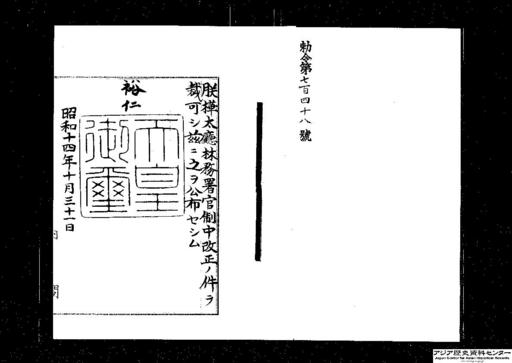 勅令第七百四十八號
朕樺太廳林務署官制中改正ノ件ヲ
裁可シ茲ニ之ヲ公布セシム
裕仁
天皇
御璽
昭和十四年十月三十一日
内閣
アジア歴史資料センター
Japan Center for Asian Historical Records